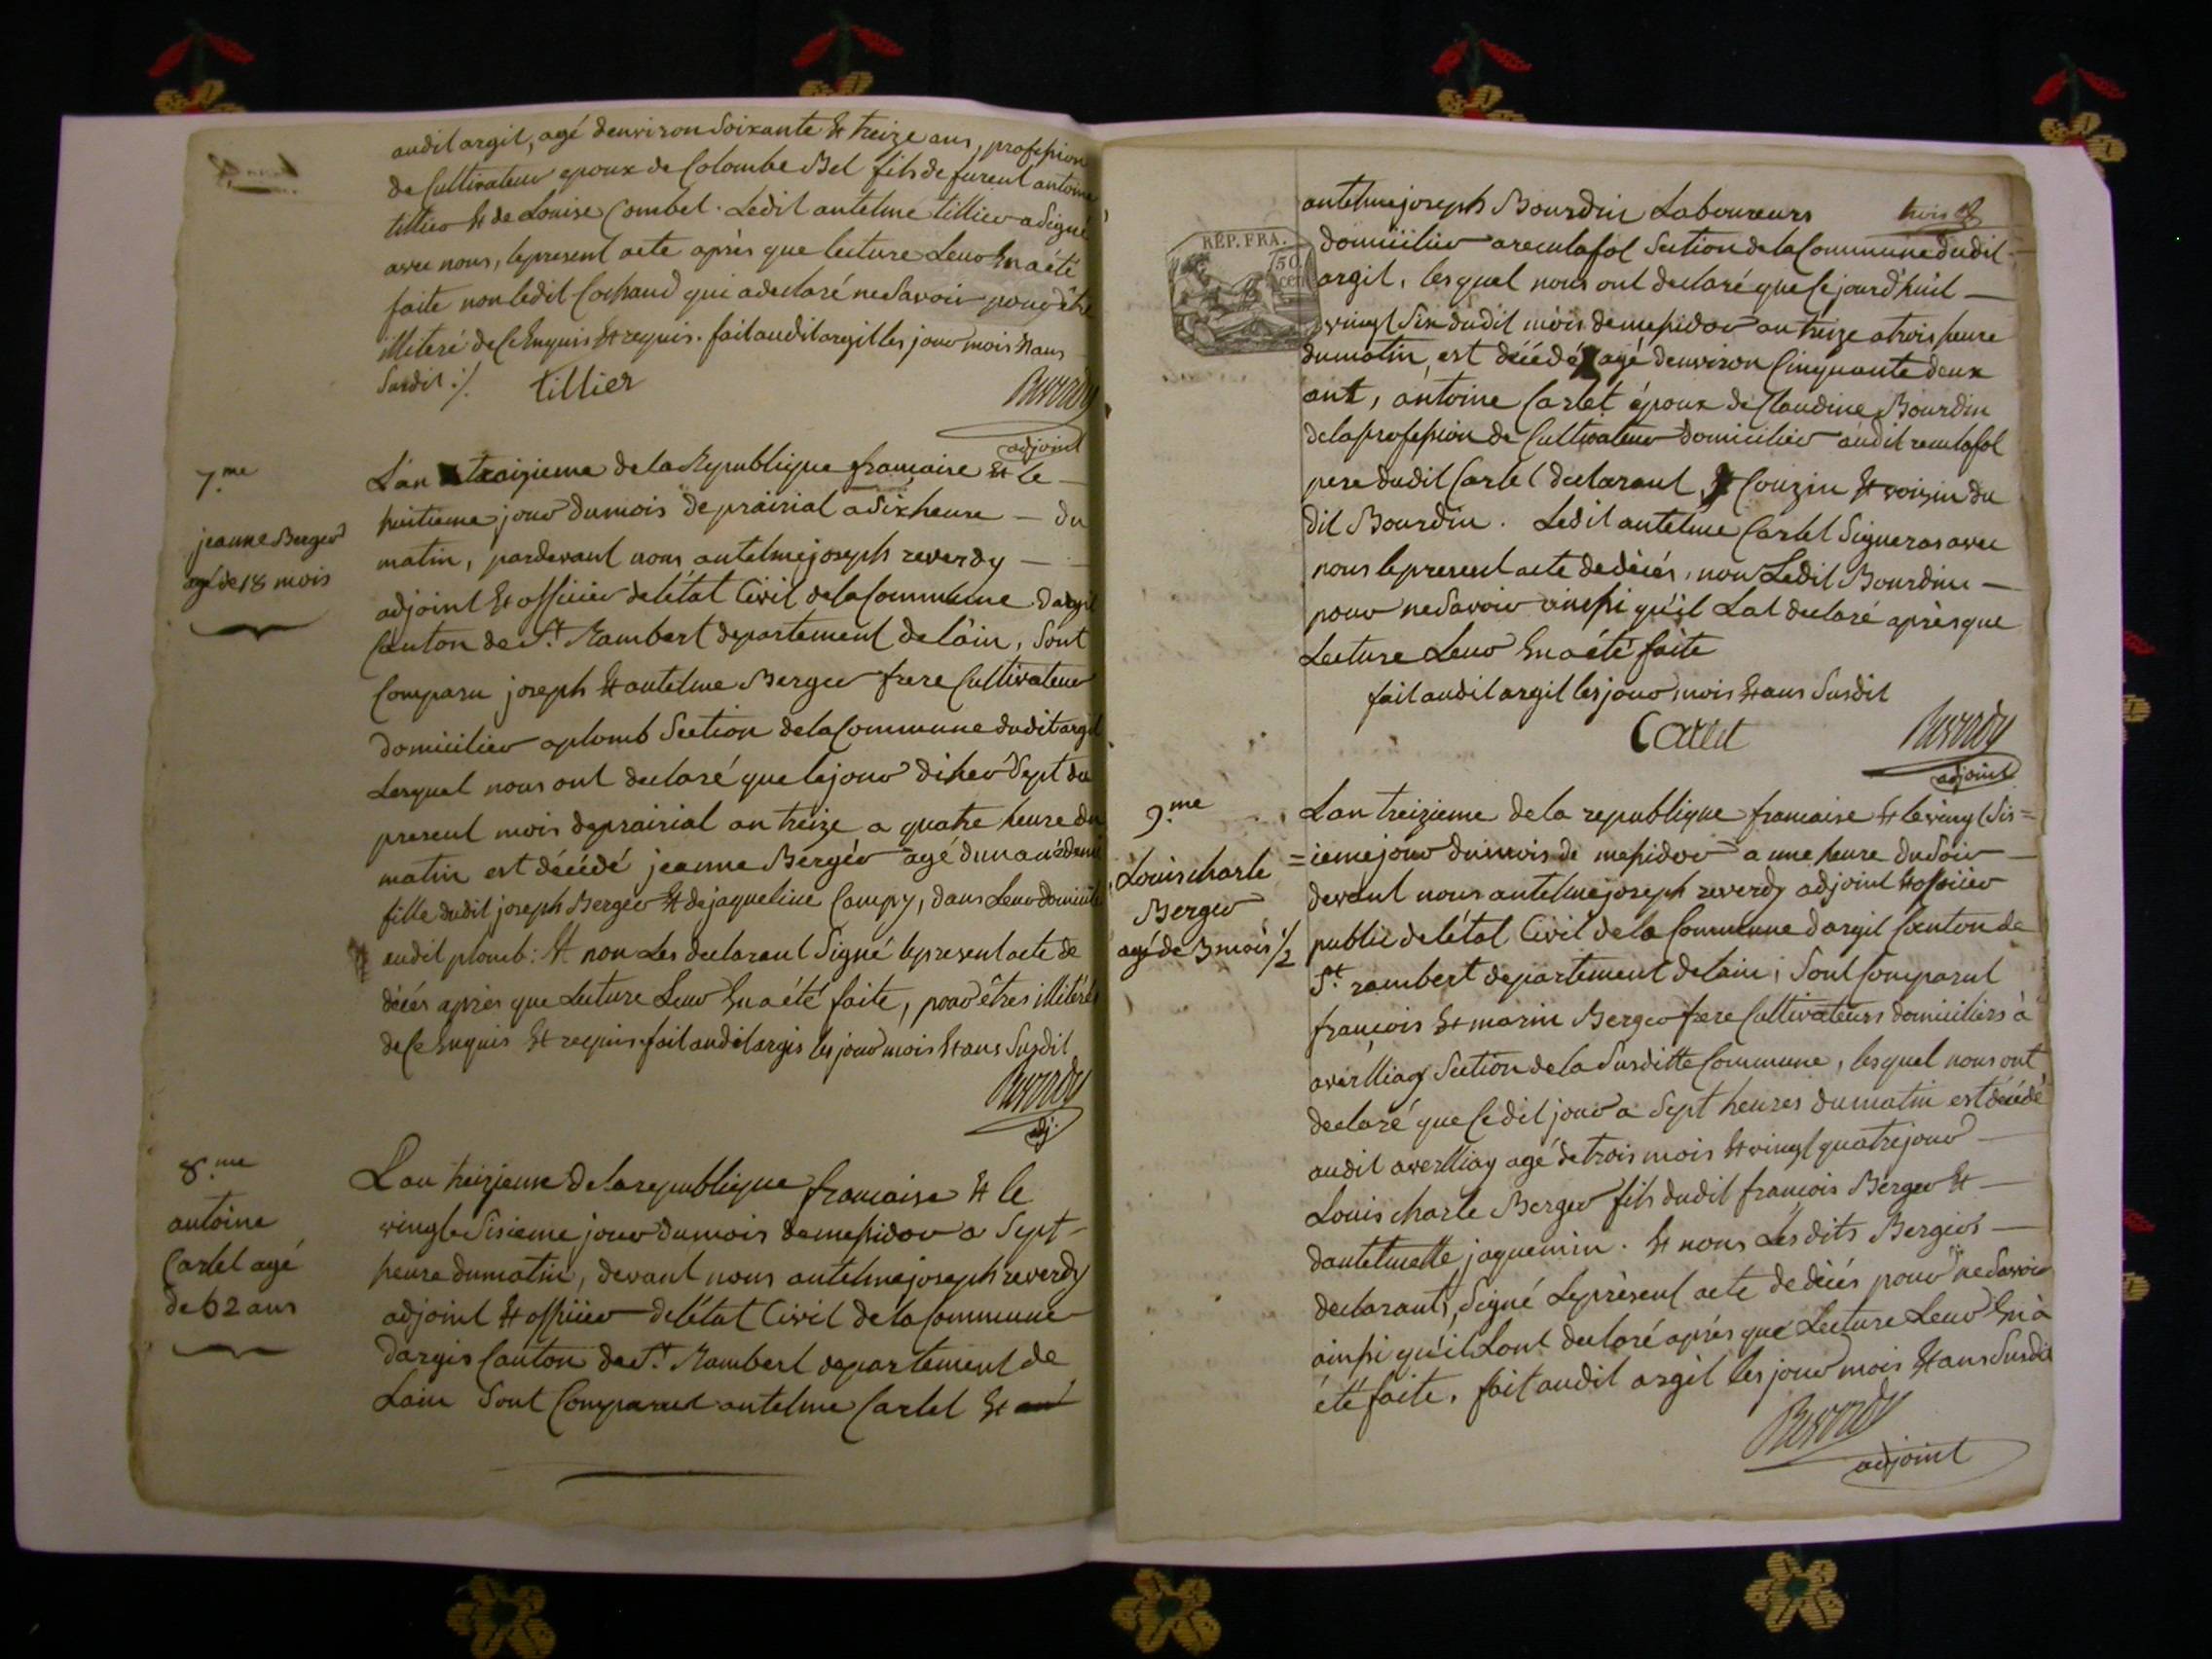 audit argil, agé denviron Soixante et treize ans, profession
de Cultivateur epoux de Colombe Bel fils de furent antoine
tillier et de Louise Combet. Ledit antelme tillier a Signé
avec nous, lepresent acte après que lecture Leur En a été
faite non ledit Cochaud qui adeclaré ne Savoir pour être
illiteré de Ce Enquis et requis. fait audit argil les jour mois et ans
Susdit ./.
tillier
Reverdy
adjoint
7.me
jeanne Berger
agé de 18 mois
L'an traizieme de la Republique française et le
huitieme jour du mois de prairial a dix heure — du
matin, pardevant nous antelme joseph reverdy —
adjoint et officier de l'état Civil de la Commune dargil
Canton de St. Rambert departement de lain, Sont
Comparu joseph et antelme Berger frere Cultivateur
domicilier aplomb Section de la Commune dudit argil
Lesquel nous ont declaré que le jour dhier Sept du
present mois de prairial an treize a quatre heure du
matin est décédé jeanne Bergér agé dun an et demi
fille dudit joseph Berger et de jaqueline Campy, dans Leur domicile
audit plomb: et non Les declarant Signé lepresent acte de
décés après que Lecture Leur En a été faite, pour êtres illitérés
de Ce Enquis et requis. fait audit argis les jour mois et ans Susdit
Reverdy
adj.
8.me
antoine
Cartet agé
de 62 ans
L'an treizieme de la republique francaise et le
vingt Sisieme jour du mois de messidor a Sept
heure du matin, devant nous antelme joseph reverdy
adjoint et officier de l'état Civil de la Commune
dargis Canton de St. Rambert departement de
Lain Sont Comparut antelme Cartet et
antelme joseph Bourdin Laboureurs
trois
RÉP. FRA.
750
cent
domicilier a reculafol Section de la Commune dudit
argil, lesquel nous ont declaré que Cejourdhuit —
vingt Six dudit mois de messidor an treize a trois heure
du matin, est décédé agé denviron Cinquante deux
ant, antoine Cartet époux de Claudine Bourdin
de la profession de Cultivateur domicilier audit reculafol
pere dudit Cartet declarant, Couzin et voizin du
dit Bourdin. Ledit antelme Cartet Signeras avec
nous lepresent acte de décés, non Ledit Bourdin —
pour ne Savoir ainssi qu'il Lat declaré après que
Lecture Leur En a été faite
fait audit argil les jour, mois et ans Susdit
Cartet
Reverdy
adjoint
9.me
Louis charle
Berger
agé de 3 mois 1/2
Lan treizieme de la republique francaise et le vingt Sis=
=ieme jour du mois de messidor a une heure du Soir —
devant nous antelme joseph reverdy adjoint et officier
public de l'état Civil de la Commune dargil Canton de
St. rambert departement de lain; Sont Comparut
françois et marin Berger frere Cultivateurs domiciliers à
averlliag Section de la Susditte Commune, lesquel nous ont
declaré que Cedit jour a Sept heures du matin est décédé
audit averlliag agé de trois mois et vingt quatre jour —
Louis charle Berger fils dudit francois Bérger et —
dantelmette jaquemin. et nous Lesdits Bergers —
declarant, Signé Leprésent acte de décés pour ne Savoir
ainssi qu'il Lont declaré après que Lecture Leur En a
été faite. fait audit argil les jour mois et ans Susdit
Reverdy
adjoint